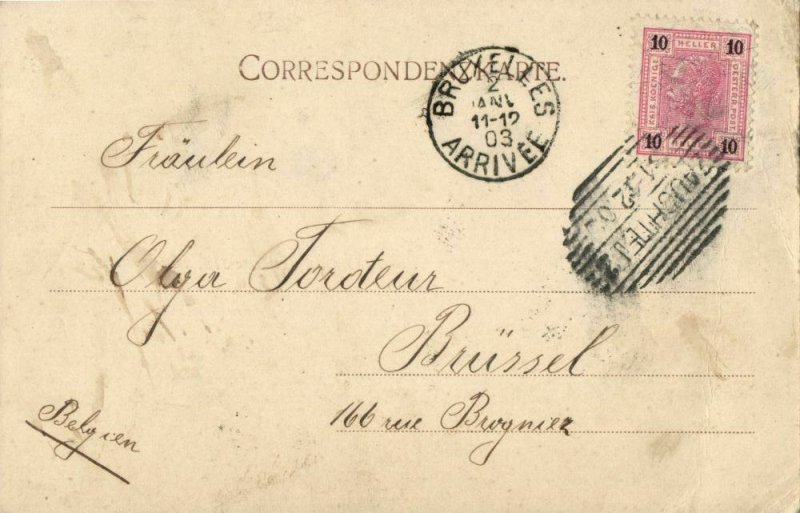 CORRESPONDENZKARTE.
BRUXELLES
2
JANV
11-12
03
ARRIVÉE
10 HELLER 10
KAIS. KOENIGL.
OESTERR. POST.
10 10
Fräulein
Olga Tordeur
Brüssel
166 rue Brognier
Belgien